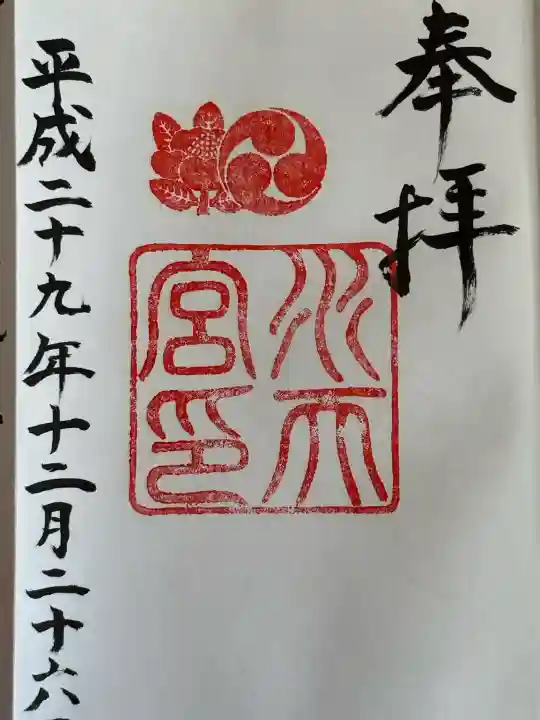 奉拝
水天
宮印
平成二十九年十二月二十六日